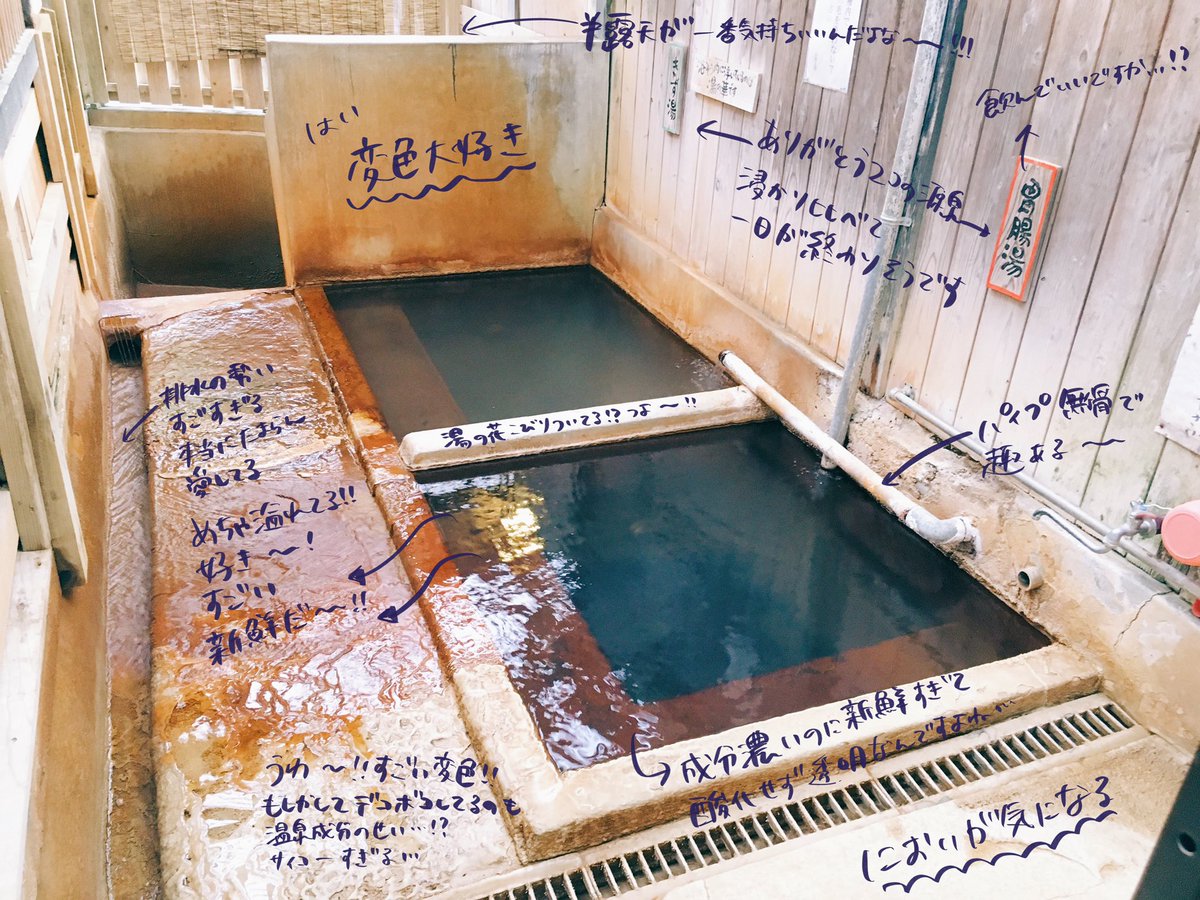 半露天が一番気持ちいいんだよな〜!!!
はい
変色大好き
きず湯
飲んでいいですか…!?
胃腸湯
ありがとう2つの源泉
浸かりくらべて
一日が終わりそうです
排水の勢い
すごすぎる
本当にたまらん
愛してる
湯の花こびりついてる!?つよ〜!!
パイプ無骨で
趣ある〜
めちゃ溢れてる!!
好き〜!
すごい
新鮮だ〜!!
うわ〜!!すごい変色!!
もしかしてデコボコしてるのも
温泉成分のせい…!?
サイコーすぎる…
成分濃いのに新鮮すぎて
酸化せず透明なんですよね…
においが気になる